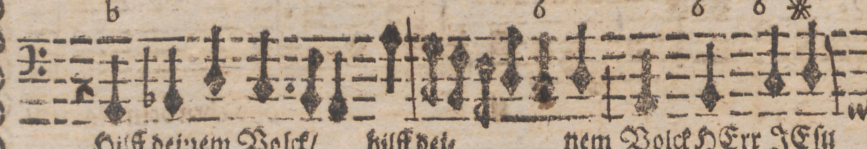 b 6 6 6
Hilff deinem Volck/ hilff dei- nem Volck HErr JEsu